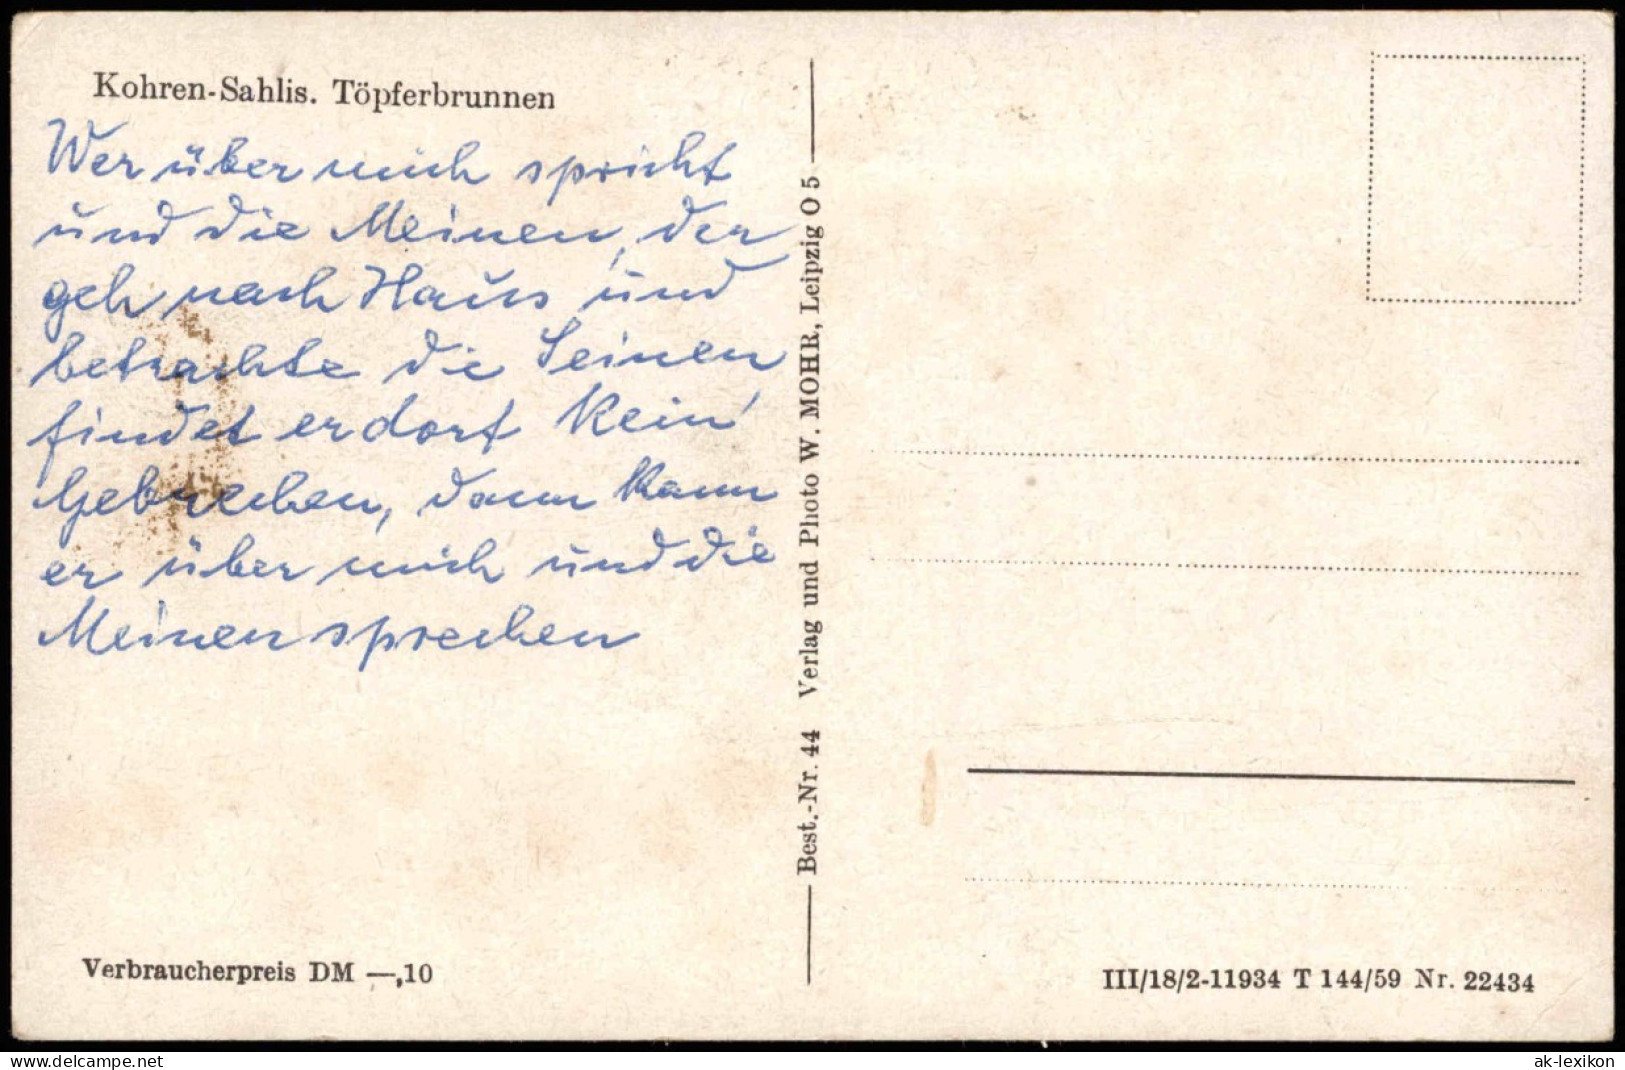 Kohren-Sahlis. Töpferbrunnen
Wer über mich spricht
und die Meinen, der
geh nach Haus und
betrachte die Seinen
findet er dort kein'
Gebrechen, dann kann
er über mich und die
Meinen sprechen
Verbraucherpreis DM —,10
Best.-Nr. 44 Verlag und Photo W. MOHR, Leipzig O 5
III/18/2-11934 T 144/59 Nr. 22434
www.delcampe.net
ak-lexikon